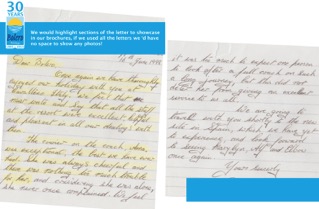 30
YEARS
We would highlight sections of the letter to showcase
in our brochures, if we used all the letters we'd have
no space to show any photos!
June 1998
Dear
Once again we have thoroughly
enjoyed our holiday with you at
must
say that all the staff
at the resort were excellent, helpful
and pleasant in all our dealings with
them.
The courier on the coach,
was exceptional, the best we have ever
had. She was always cheerful and
there was nothing too much trouble
for her, and considering she was alone,
she never once complained. We feel
it was too much to expect one person
to look after a full coach on such
a long journey, but this did not
deter her from giving an excellent
service to us all.
We are going to
travel with you shortly to the
in Spain, which we have yet
to experience, and look forward
to seeing
and
once again.
Yours sincerely